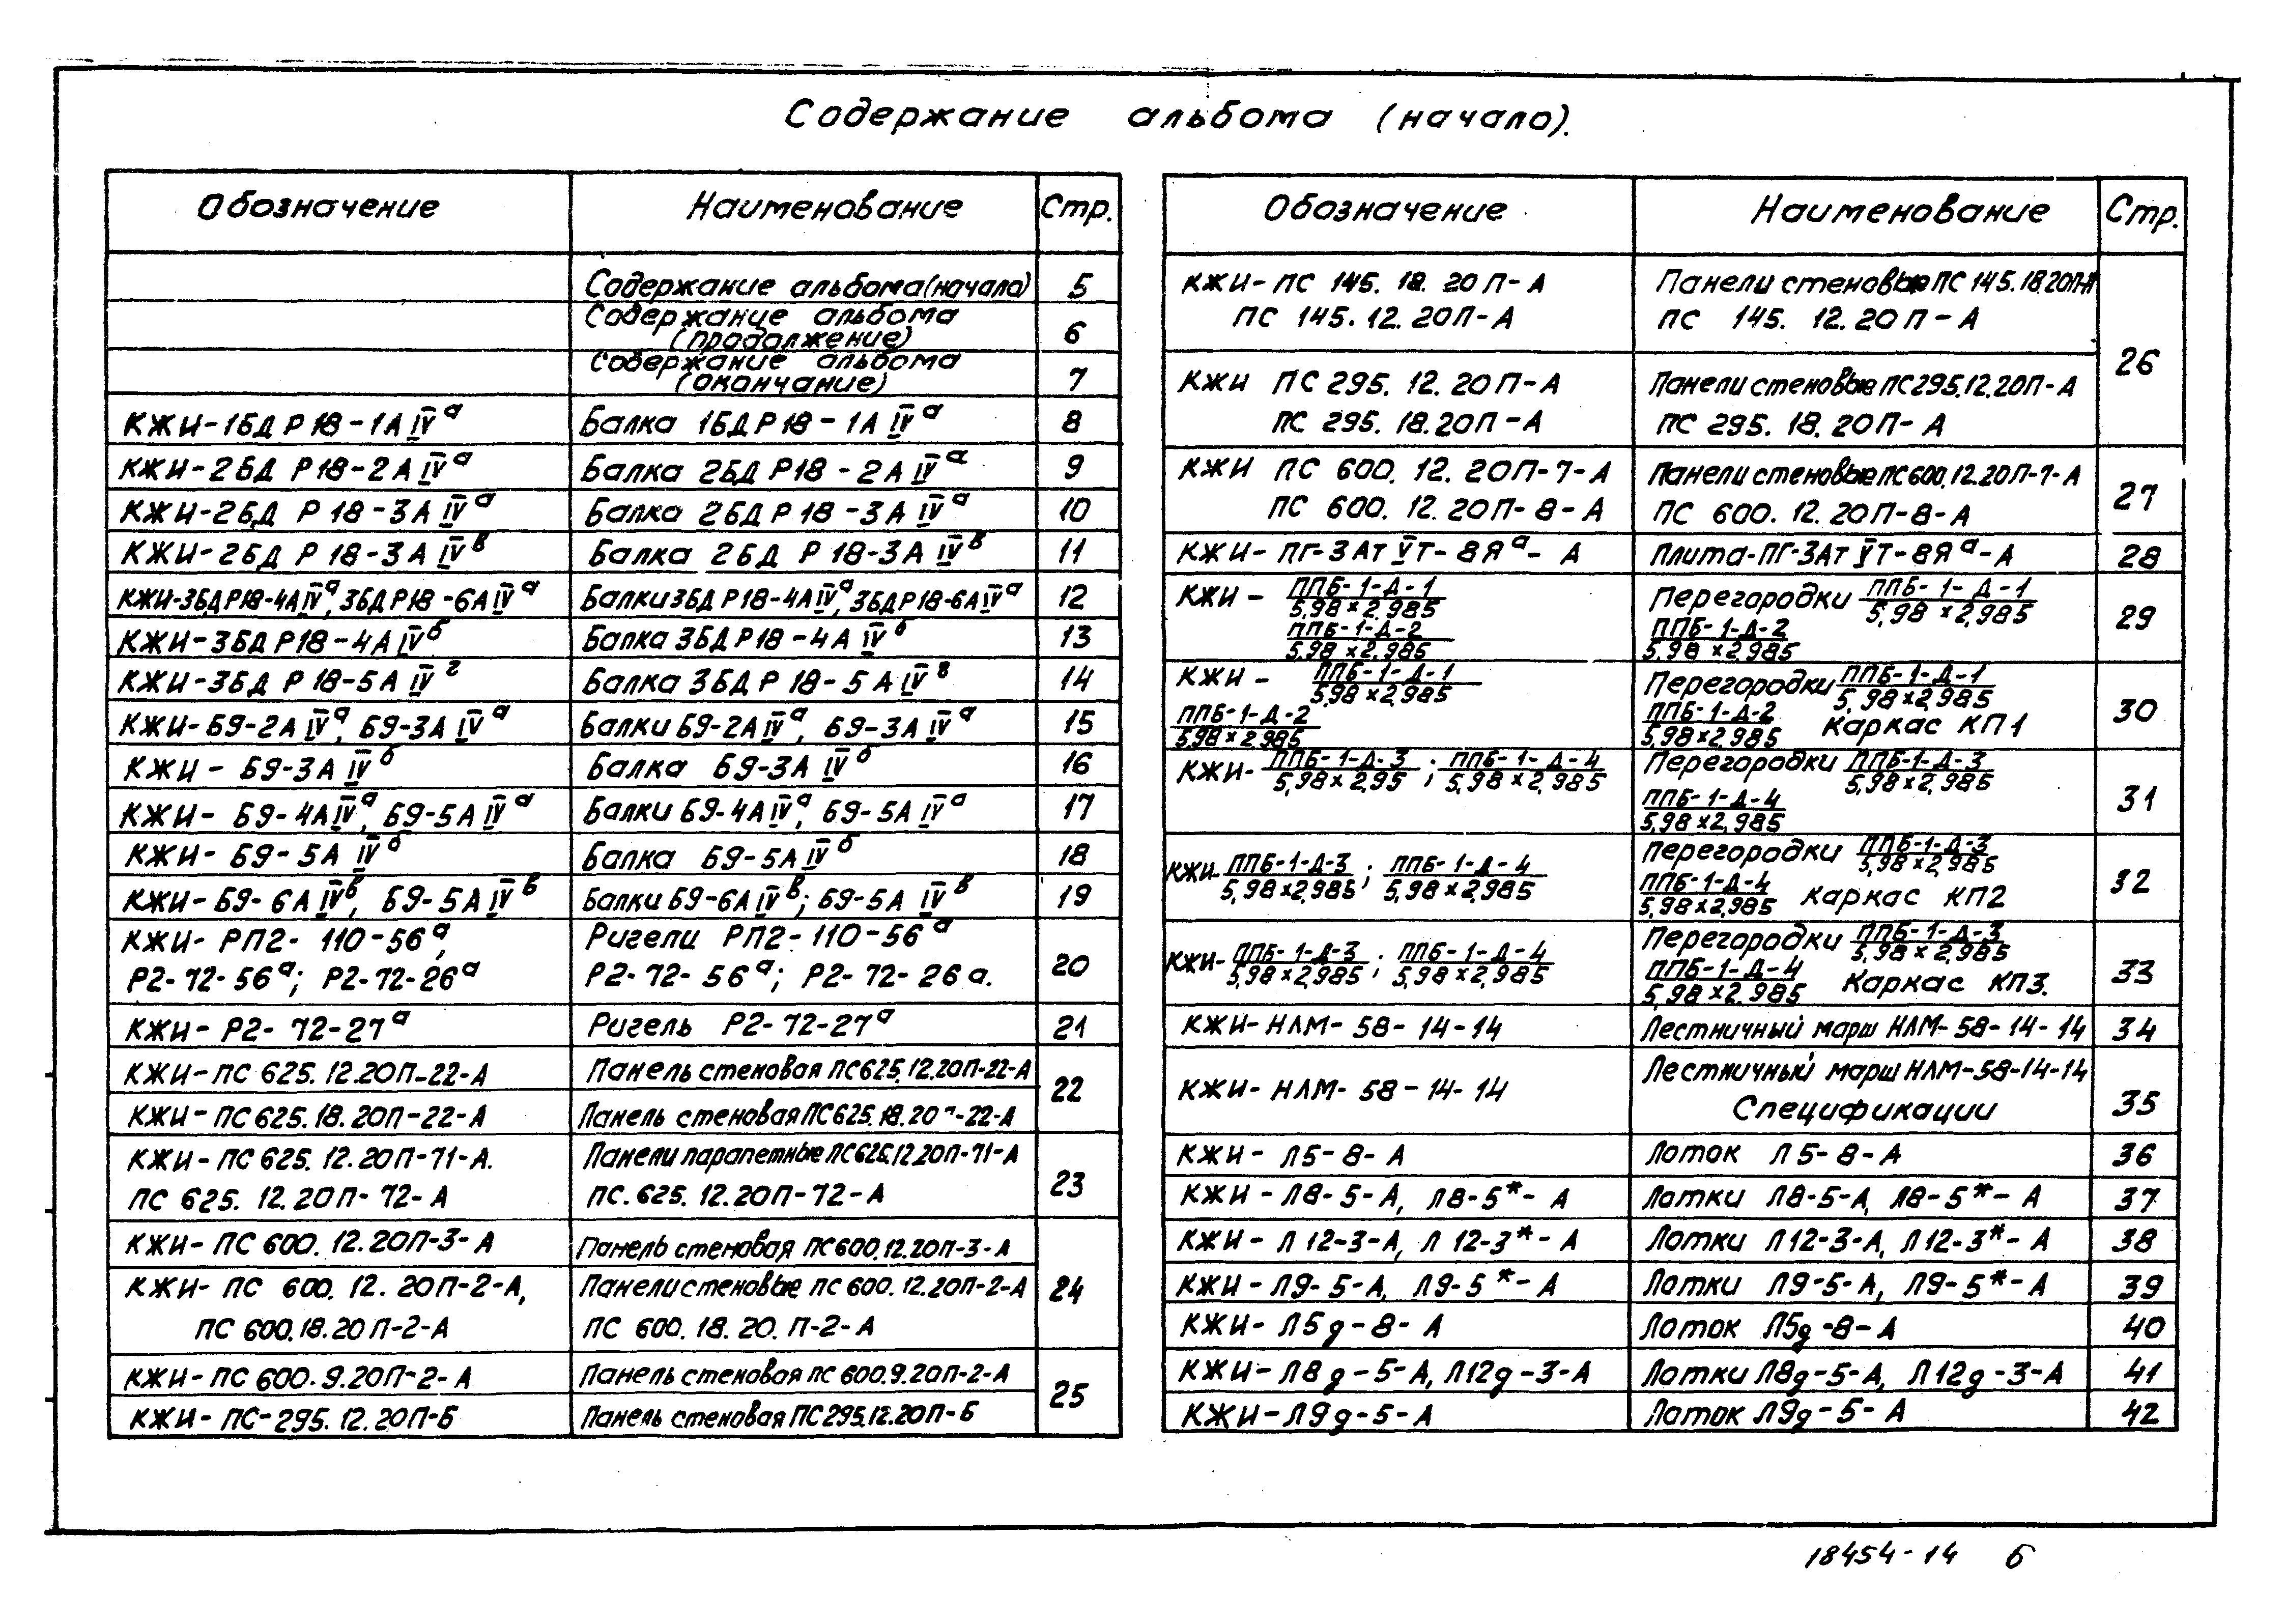 Содержание альбома (начало).
Обозначение Наименование Стр.
Содержание альбома (начало) 5
Содержание альбома
(продолжение) 6
Содержание альбома
(окончание) 7
КЖИ-1БДР18-1АIVа Балка 1БДР18-1АIVа 8
КЖИ-2БДР18-2АIVа Балка 2БДР18-2АIVа 9
КЖИ-2БДР18-3АIVа Балка 2БДР18-3АIVа 10
КЖИ-2БДР18-3АIVв Балка 2БДР18-3АIVв 11
КЖИ-3БДР18-4АIVа, 3БДР18-6АIVа Балки 3БДР18-4АIVа, 3БДР18-6АIVа 12
КЖИ-3БДР18-4АIVб Балка 3БДР18-4АIVб 13
КЖИ-3БДР18-5АIVг Балка 3БДР18-5АIVв 14
КЖИ-Б9-2АIVа, Б9-3АIVа Балки Б9-2АIVа, Б9-3АIVа 15
КЖИ-Б9-3АIVб Балка Б9-3АIVб 16
КЖИ-Б9-4АIVа, Б9-5АIVа Балки Б9-4АIVа, Б9-5АIVа 17
КЖИ-Б9-5АIVб Балка Б9-5АIVб 18
КЖИ-Б9-6АIVв, Б9-5АIVв Балки Б9-6АIVв; Б9-5АIVв 19
КЖИ-РП2-110-56а, Ригели РП2-110-56а
Р2-72-56а; Р2-72-26а Р2-72-56а; Р2-72-26а. 20
КЖИ-Р2-72-27а Ригель Р2-72-27а 21
КЖИ-ПС 625.12.20П-22-А Панель стеновая ПС625.12.20П-22-А 22
КЖИ-ПС 625.18.20П-22-А Панель стеновая ПС625.18.20П-22-А
КЖИ-ПС 625.12.20П-71-А. Панели парапетные ПС625.12.20П-71-А
ПС 625.12.20П-72-А ПС.625.12.20П-72-А 23
КЖИ-ПС 600.12.20П-3-А Панель стеновая ПС600.12.20П-3-А
КЖИ-ПС 600.12.20П-2-А, Панели стеновые ПС 600.12.20П-2-А 24
ПС 600.18.20П-2-А ПС 600.18.20.П-2-А
КЖИ-ПС 600.9.20П-2-А Панель стеновая ПС 600.9.20П-2-А 25
КЖИ-ПС-295.12.20П-Б Панель стеновая ПС295.12.20П-Б
Обозначение Наименование Стр.
КЖИ-ПС 145.18.20П-А Панели стеновые ПС 145.18.20П-А
ПС 145.12.20П-А ПС 145.12.20П-А 26
КЖИ ПС 295.12.20П-А Панели стеновые ПС295.12.20П-А
ПС 295.18.20П-А ПС 295.18.20П-А
КЖИ ПС 600.12.20П-7-А Панели стеновые ПС600.12.20П-7-А 27
ПС 600.12.20П-8-А ПС 600.12.20П-8-А
КЖИ-ПГ-3АтVТ-8Яа-А Плита-ПГ-3АтVТ-8Яа-А 28
КЖИ- ППБ-1-Д-1 Перегородки ППБ-1-Д-1
5,98×2,985 5,98×2,985 29
ППБ-1-Д-2 ППБ-1-Д-2
5,98×2,985 5,98×2,985
КЖИ- ППБ-1-Д-1 Перегородки ППБ-1-Д-1
5,98×2,985 5,98×2,985 30
ППБ-1-Д-2 ППБ-1-Д-2 Каркас КП1
5,98×2,985 5,98×2,985
КЖИ- ППБ-1-Д-3 ; ППБ-1-Д-4 Перегородки ППБ-1-Д-3
5,98×2,95 5,98×2,985 5,98×2,985
ППБ-1-Д-4 31
5,98×2,985
КЖИ- ППБ-1-Д-3 ; ППБ-1-Д-4 Перегородки ППБ-1-Д-3
5,98×2,985 5,98×2,985 5,98×2,985 32
ППБ-1-Д-4 Каркас КП2
5,98×2,985
КЖИ- ППБ-1-Д-3 ; ППБ-1-Д-4 Перегородки ППБ-1-Д-3
5,98×2,985 5,98×2,985 5,98×2,985 33
ППБ-1-Д-4 Каркас КП3.
5,98×2,985
КЖИ-НЛМ-58-14-14 Лестничный марш НЛМ-58-14-14 34
КЖИ-НЛМ-58-14-14 Лестничный марш НЛМ-58-14-14
Спецификации 35
КЖИ-Л5-8-А Лоток Л5-8-А 36
КЖИ-Л8-5-А, Л8-5*-А Лотки Л8-5-А, Л8-5*-А 37
КЖИ-Л12-3-А, Л12-3*-А Лотки Л12-3-А, Л12-3*-А 38
КЖИ-Л9-5-А, Л9-5*-А Лотки Л9-5-А, Л9-5*-А 39
КЖИ-Л5д-8-А Лоток Л5д-8-А 40
КЖИ-Л8д-5-А, Л12д-3-А Лотки Л8д-5-А, Л12д-3-А 41
КЖИ-Л9д-5-А Лоток Л9д-5-А 42
18454-14 6